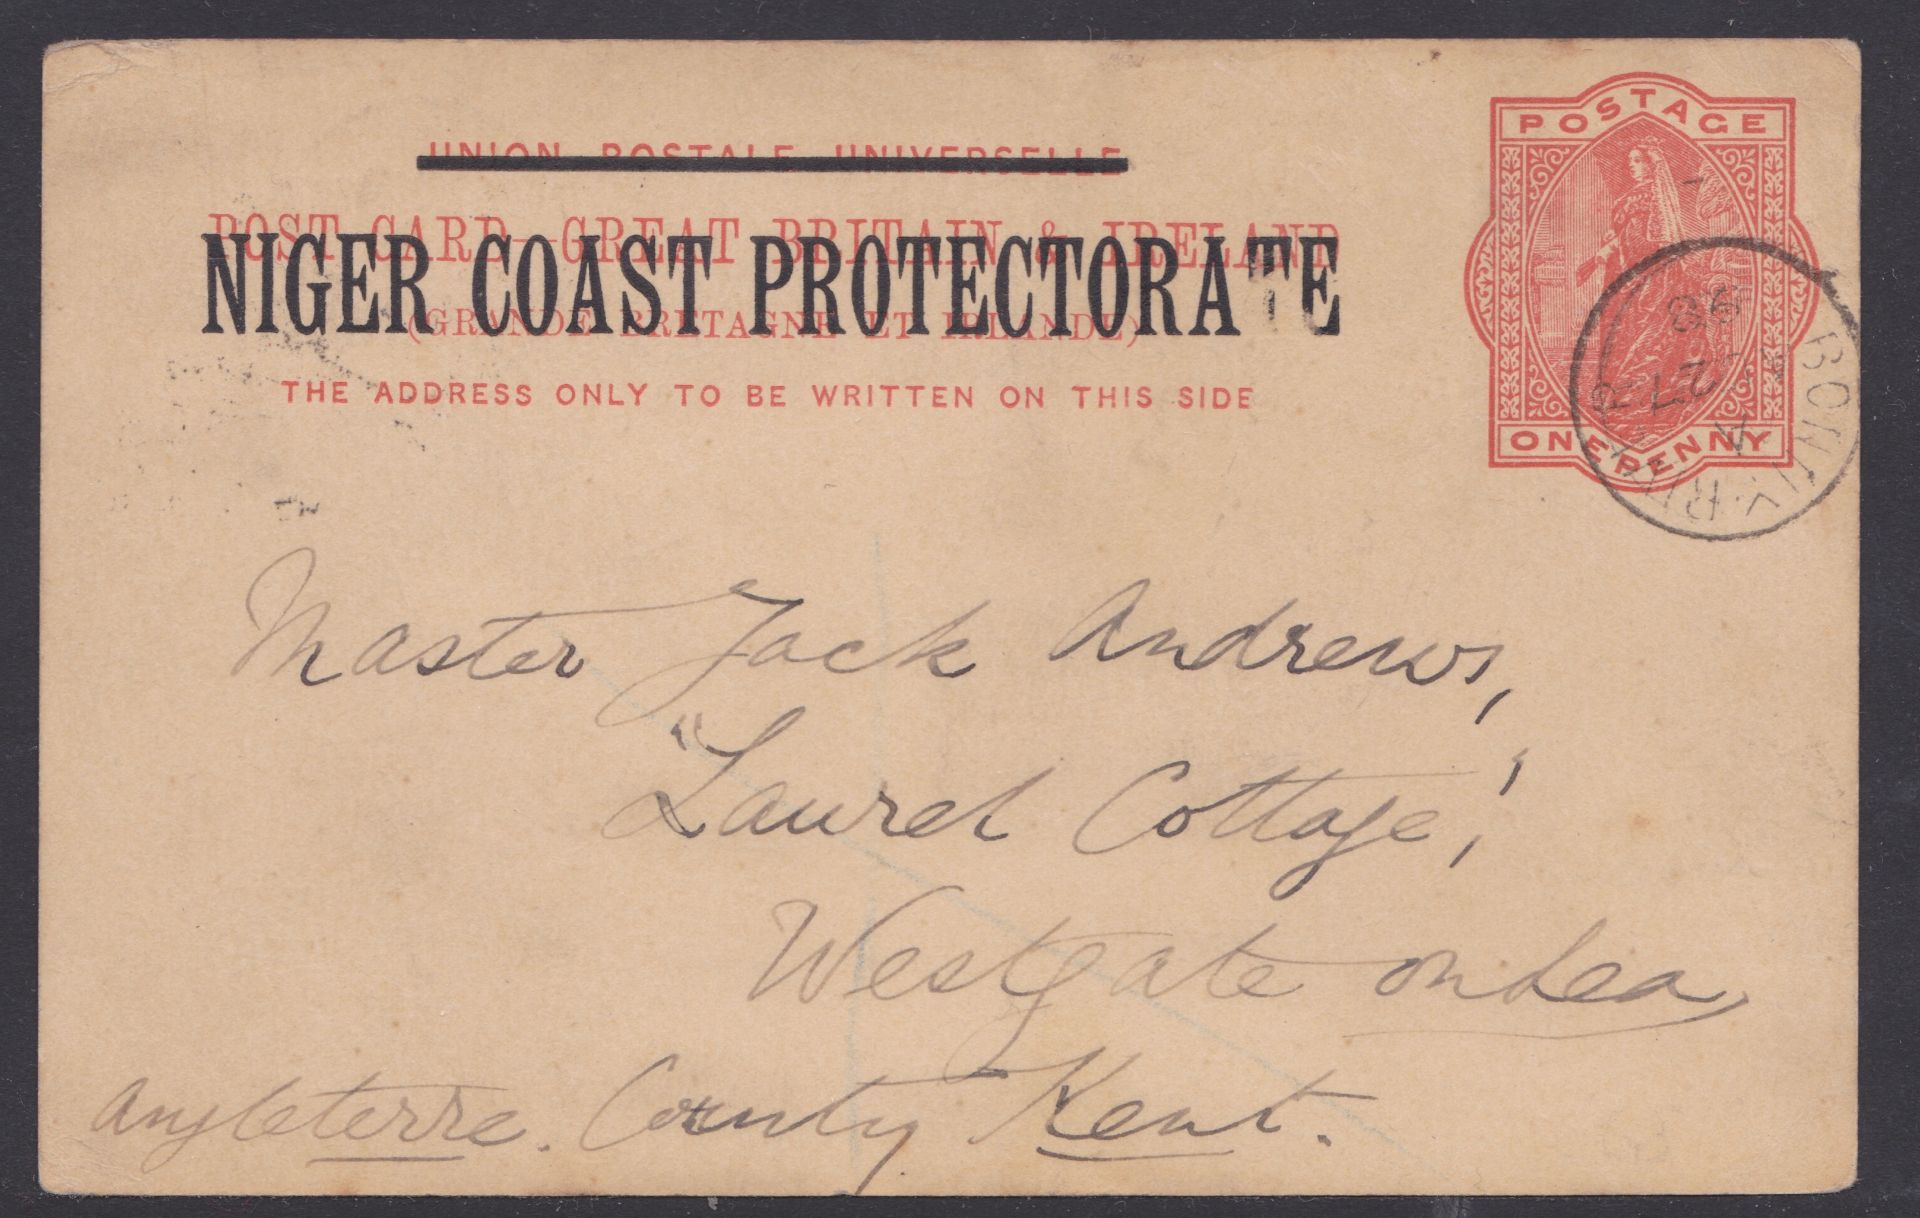 UNION POSTALE UNIVERSELLE
POST CARD—GREAT BRITAIN & IRELAND
NIGER COAST PROTECTORATE
(GRANDE BRETAGNE ET IRLANDE)
THE ADDRESS ONLY TO BE WRITTEN ON THIS SIDE
POSTAGE
ONE PENNY
BONNY. RIVER
A
27
98
Master Jack Andrews,
"Laurel Cottage,'
Westgate on Sea,
Angleterre. County Kent.